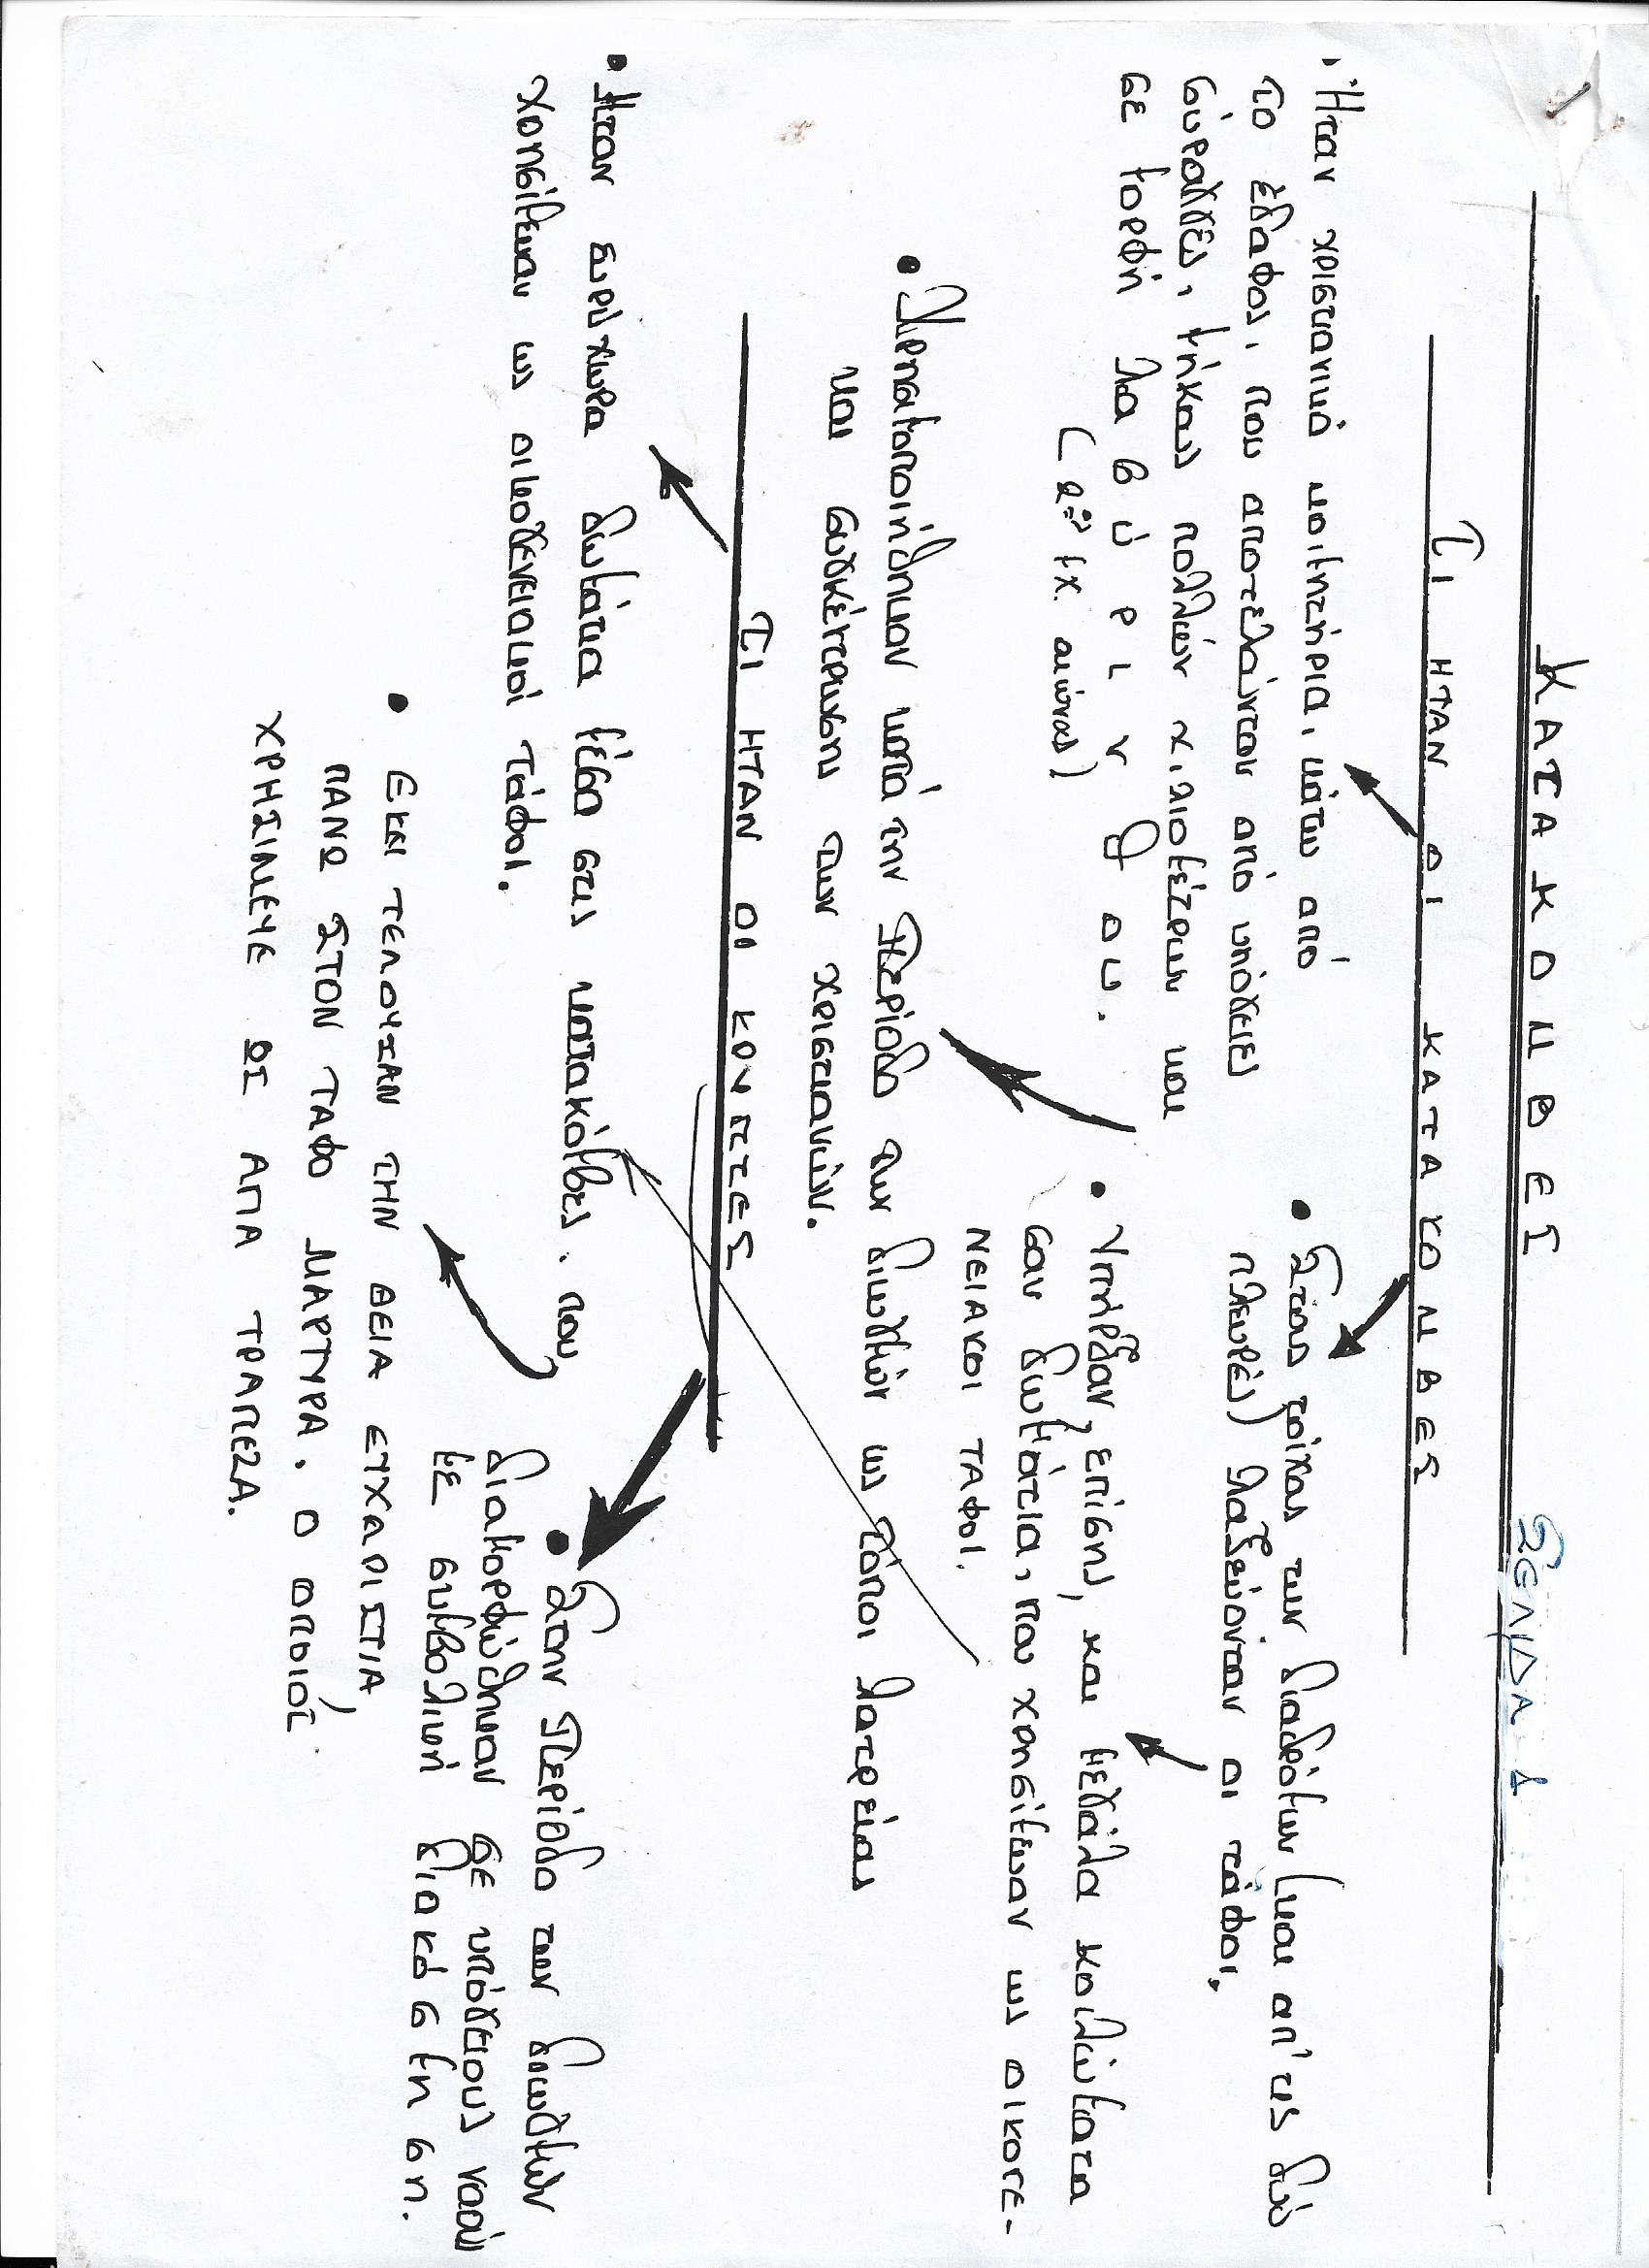 ΚΑΤΑΚΟΜΒΕΣ
ΣΕΛΙΔΑ 1
ΤΙ ΗΤΑΝ ΟΙ ΚΑΤΑΚΟΜΒΕΣ
• Ήταν χριστιανικά κοιμητήρια, κάτω από
το έδαφος, που αποτελούνταν από υπόγειες
σύραγγες, μήκους πολλών χιλιομέτρων και
σε μορφή λαβύρινθου.
(2ος μχ αιώνας)
• Στους τοίχους των διαδρόμων (και απ'τις δύο
πλευρές) λαξεύονταν οι τάφοι.
• Υπήρξαν, επίσης, και μεγάλα κοιλώματα
σαν δωμάτια, που χρησίμευαν ως οικογε-
νειακοι ταφοι.
• Χρησιμοποιήθηκαν κατά την περίοδο των διωγμών ως τόποι λατρείας
και συγκέντρωσης των χριστιανών.
ΤΙ ΗΤΑΝ ΟΙ ΚΡΥΠΤΕΣ
• Ήταν ευρύχωρα δωμάτια μέσα στις κατακόμβες, που
χρησίμευαν ως οικογενειακοί τάφοι.
• Στην περίοδο των διωγμών
διαμορφώθηκαν σε υπόγειους ναούς
με συμβολική διακόσμηση.
• ΕΚΕΙ ΤΕΛΟΥΣΑΝ ΤΗΝ ΘΕΙΑ ΕΥΧΑΡΙΣΤΙΑ
ΠΑΝΩ ΣΤΟΝ ΤΑΦΟ ΜΑΡΤΥΡΑ, Ο ΟΠΟΙΟΣ
ΧΡΗΣΙΜΕΥΕ ΩΣ ΑΓΙΑ ΤΡΑΠΕΖΑ.